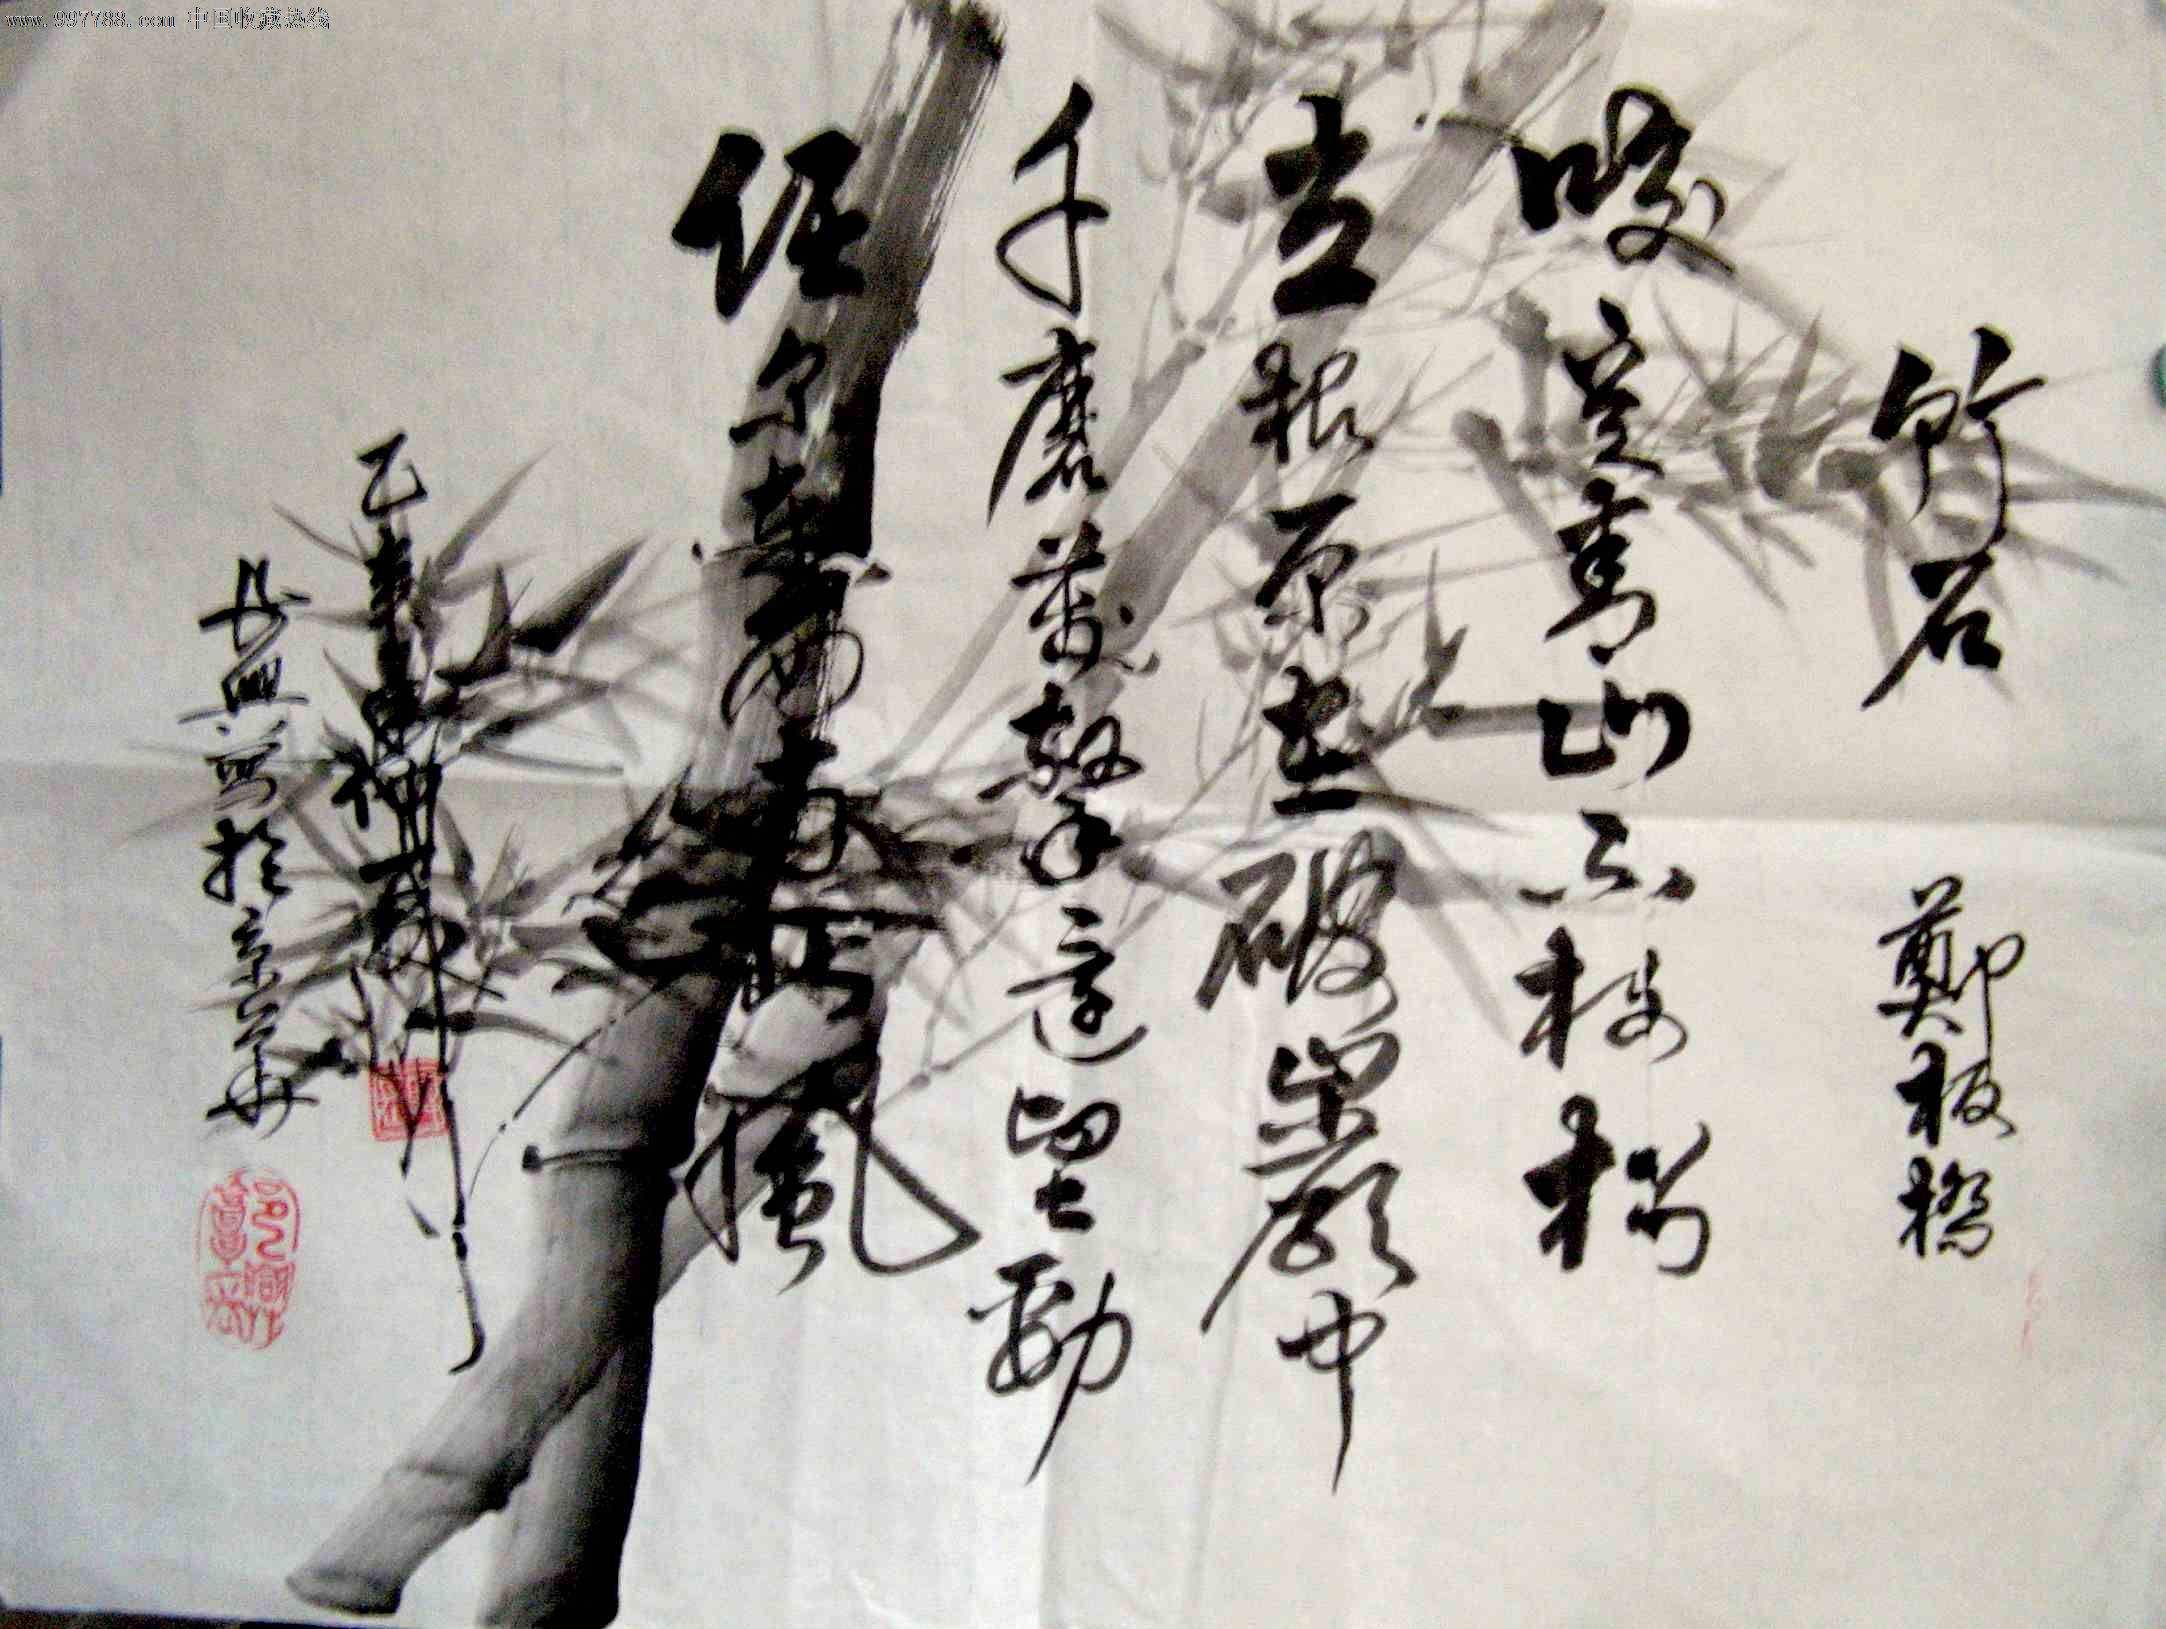 www.997788.com 中国收藏热线
竹石 鄭板橋
咬定青山不放松
立根原在破巖中
千磨萬擊還堅勁
任尔東西南北風
乙亥年仲夏
興寫於京華